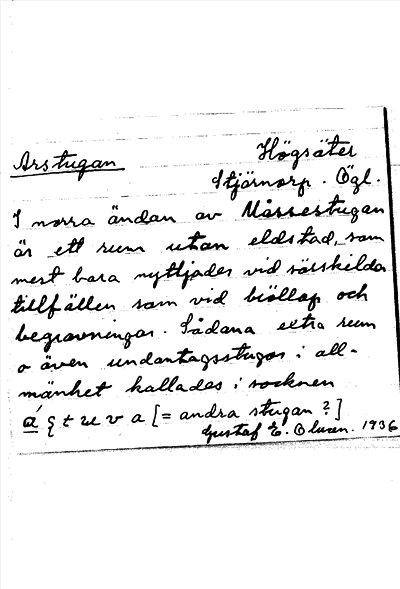 Arstugan
Högsäter
Stjärnorp. Ögl.
I norra ändan av Måssestugan
är ett rum utan eldstad, som
mest bara nyttjades vid särskilda
tillfällen som vid bröllop och
begravningar. Sådana extra rum
o även undantagsstugor i all-
mänhet kallades i socknen
[= andra stugan?]
Gustaf E. Olsson. 1936